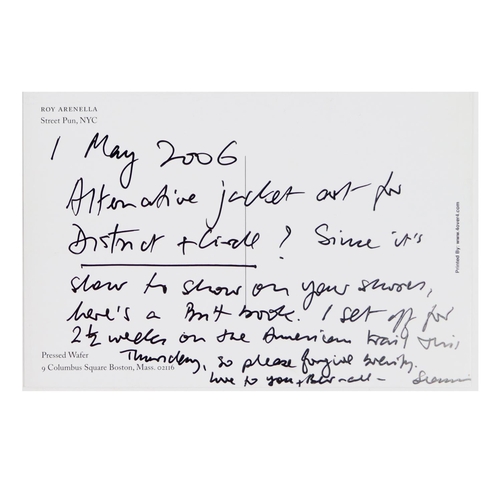 ROY ARENELLA
Street Pun, NYC
1 May 2006
Alternative jacket art for
District + Circle? Since it's
slow to show on your shores,
here's a Brit book. I set off for
2½ weeks on the American trail this
Thursday, so please forgive brevity.
Love to you + all - Seamus
Pressed Wafer
9 Columbus Square Boston, Mass. 02116
Printed By: www.4over4.com